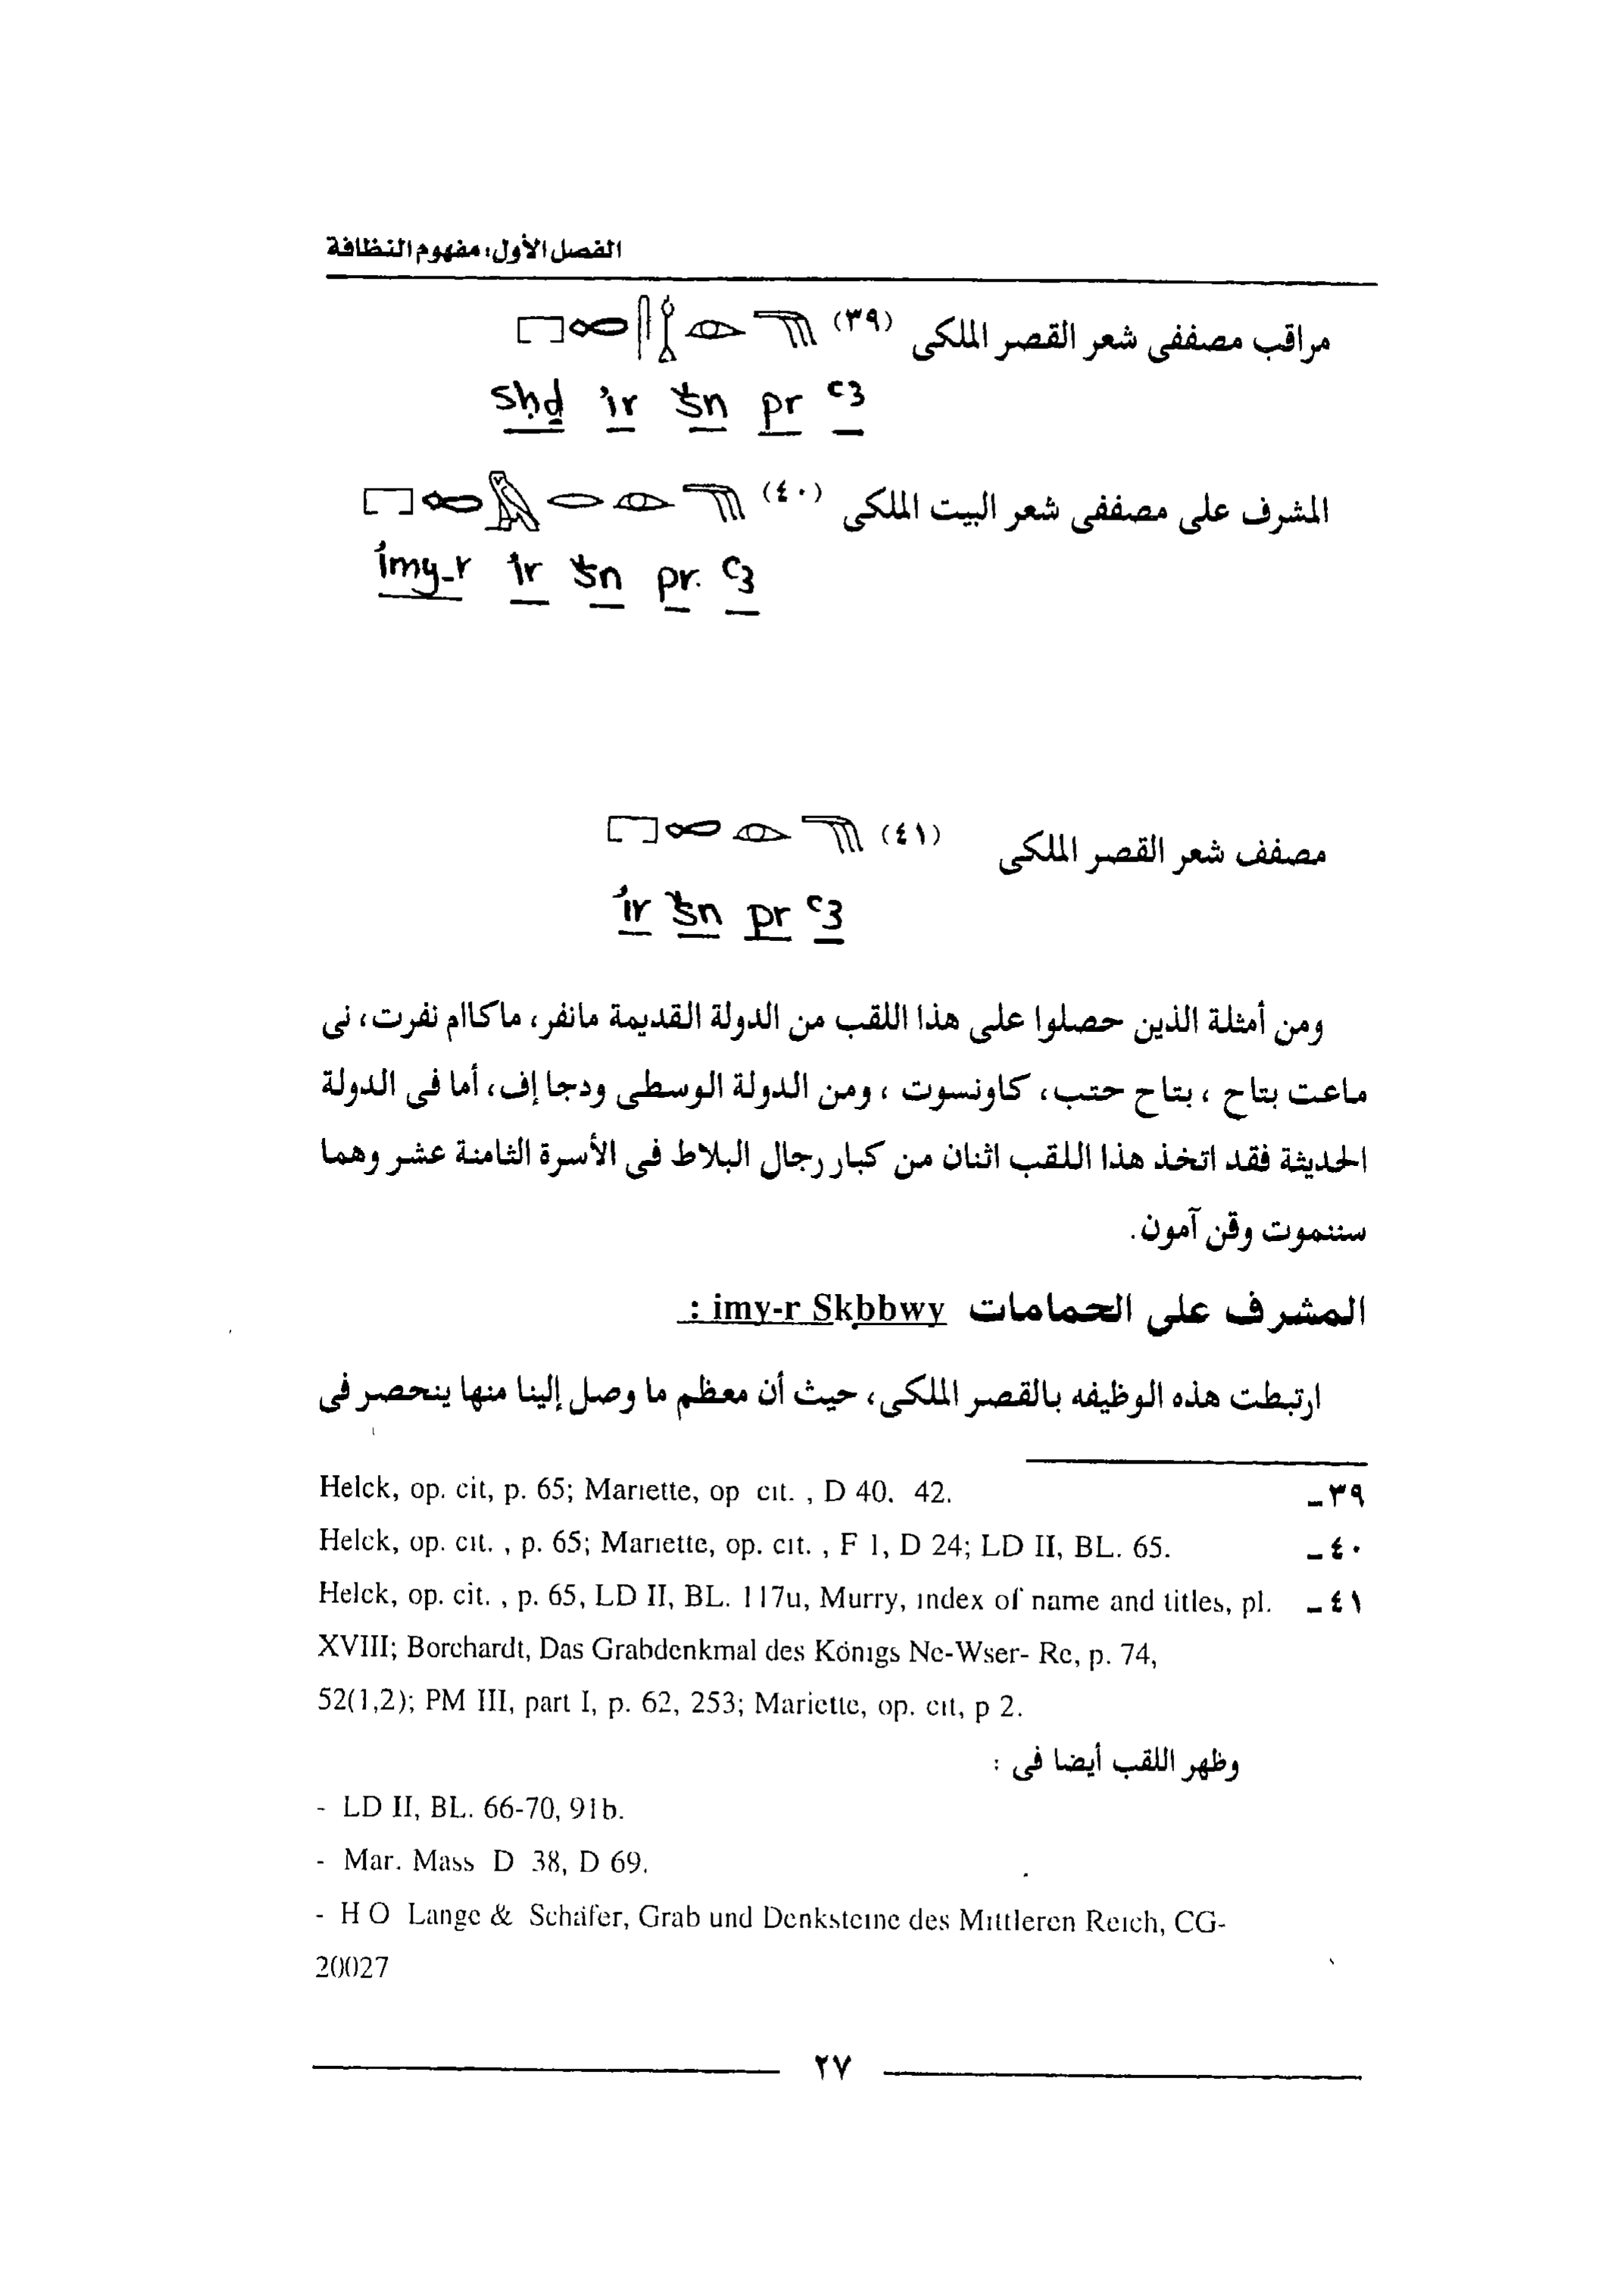 الفصل الأول، مفهوم النظافة
مراقب مصففى شعر القصر الملكى (٣٩)
sḥḏ ir šn pr ꜥꜣ
المشرف على مصففى شعر البيت الملكى (٤٠)
imy-r ir šn pr. ꜥꜣ
مصفف شعر القصر الملكى (٤١)
ir šn pr ꜥꜣ
ومن أمثلة الذين حصلوا على هذا اللقب من الدولة القديمة مانفر، ماكاام نفرت، نى
ماعت بتاح ، بتاح حتب، كاونسوت ، ومن الدولة الوسطى ودجا إف، أما فى الدولة
الحديثة فقد اتخذ هذا اللقب اثنان من كبار رجال البلاط فى الأسرة الثامنة عشر وهما
سننموت وقن آمون.
المشرف على الحمامات imy-r Skbbwy :
ارتبطت هذه الوظيفه بالقصر الملكى، حيث أن معظم ما وصل إلينا منها ينحصر فى
٣٩ـ Helck, op. cit, p. 65; Mariette, op cit. , D 40. 42.
٤٠ـ Helck, op. cit. , p. 65; Mariette, op. cit. , F 1, D 24; LD II, BL. 65.
٤١ـ Helck, op. cit. , p. 65, LD II, BL. 117u, Murry, index of name and titles, pl.
XVIII; Borchardt, Das Grabdenkmal des Königs Ne-Wser- Re, p. 74,
52(1,2); PM III, part I, p. 62, 253; Mariette, op. cit, p 2.
وظهر اللقب أيضا فى :
- LD II, BL. 66-70, 91b.
- Mar. Mass D 38, D 69.
- H O Lange & Schäfer, Grab und Denksteine des Mittleren Reich, CG-
20027
٢٧